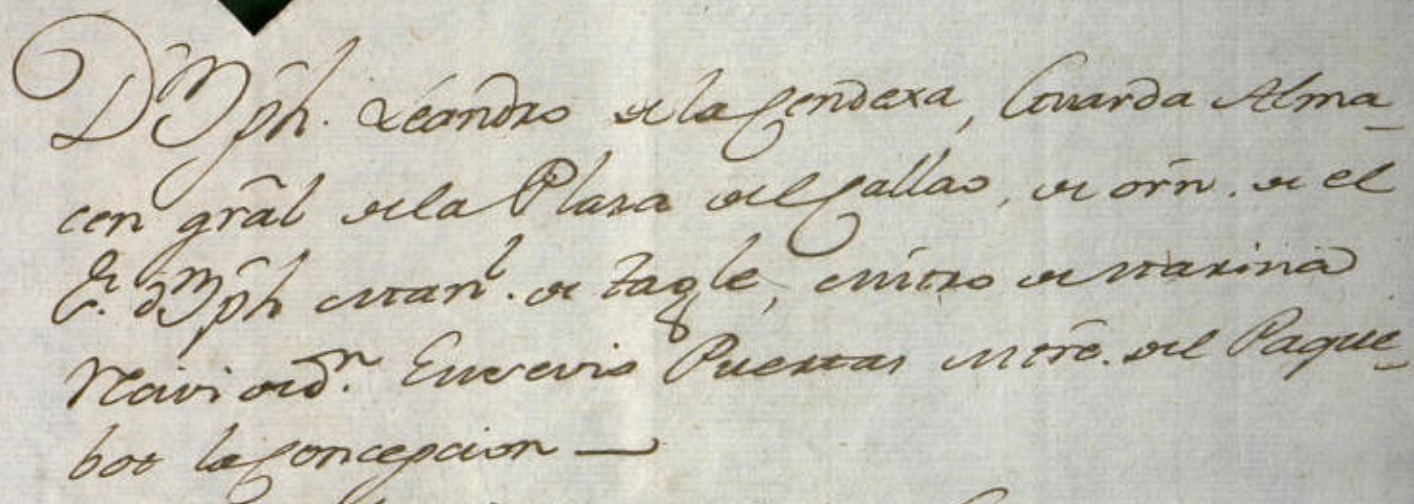 Dn Jph. Leandro de la Cendexa, Guarda Alma-
cen gral de la Plaza del Callao, de orn. de el
Sr. dn Jph Manl. de Tagle, Mitro de Marina
Reciví de dn. Eusevio Puertas Mtre. del Paque-
bot la Concepcion